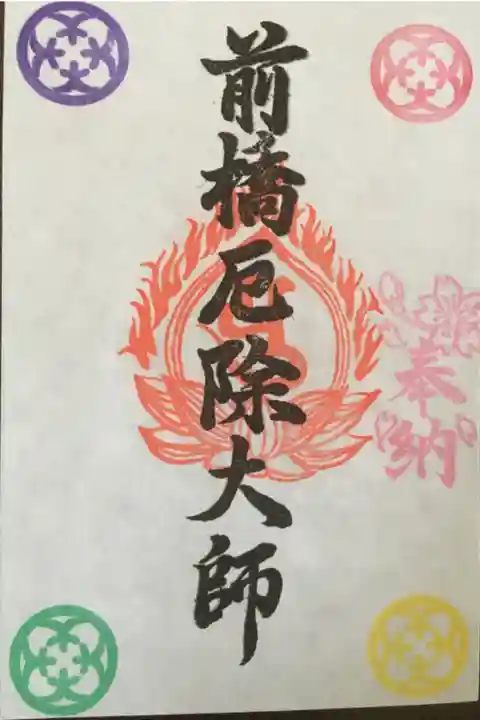 前橋厄除大師
奉納